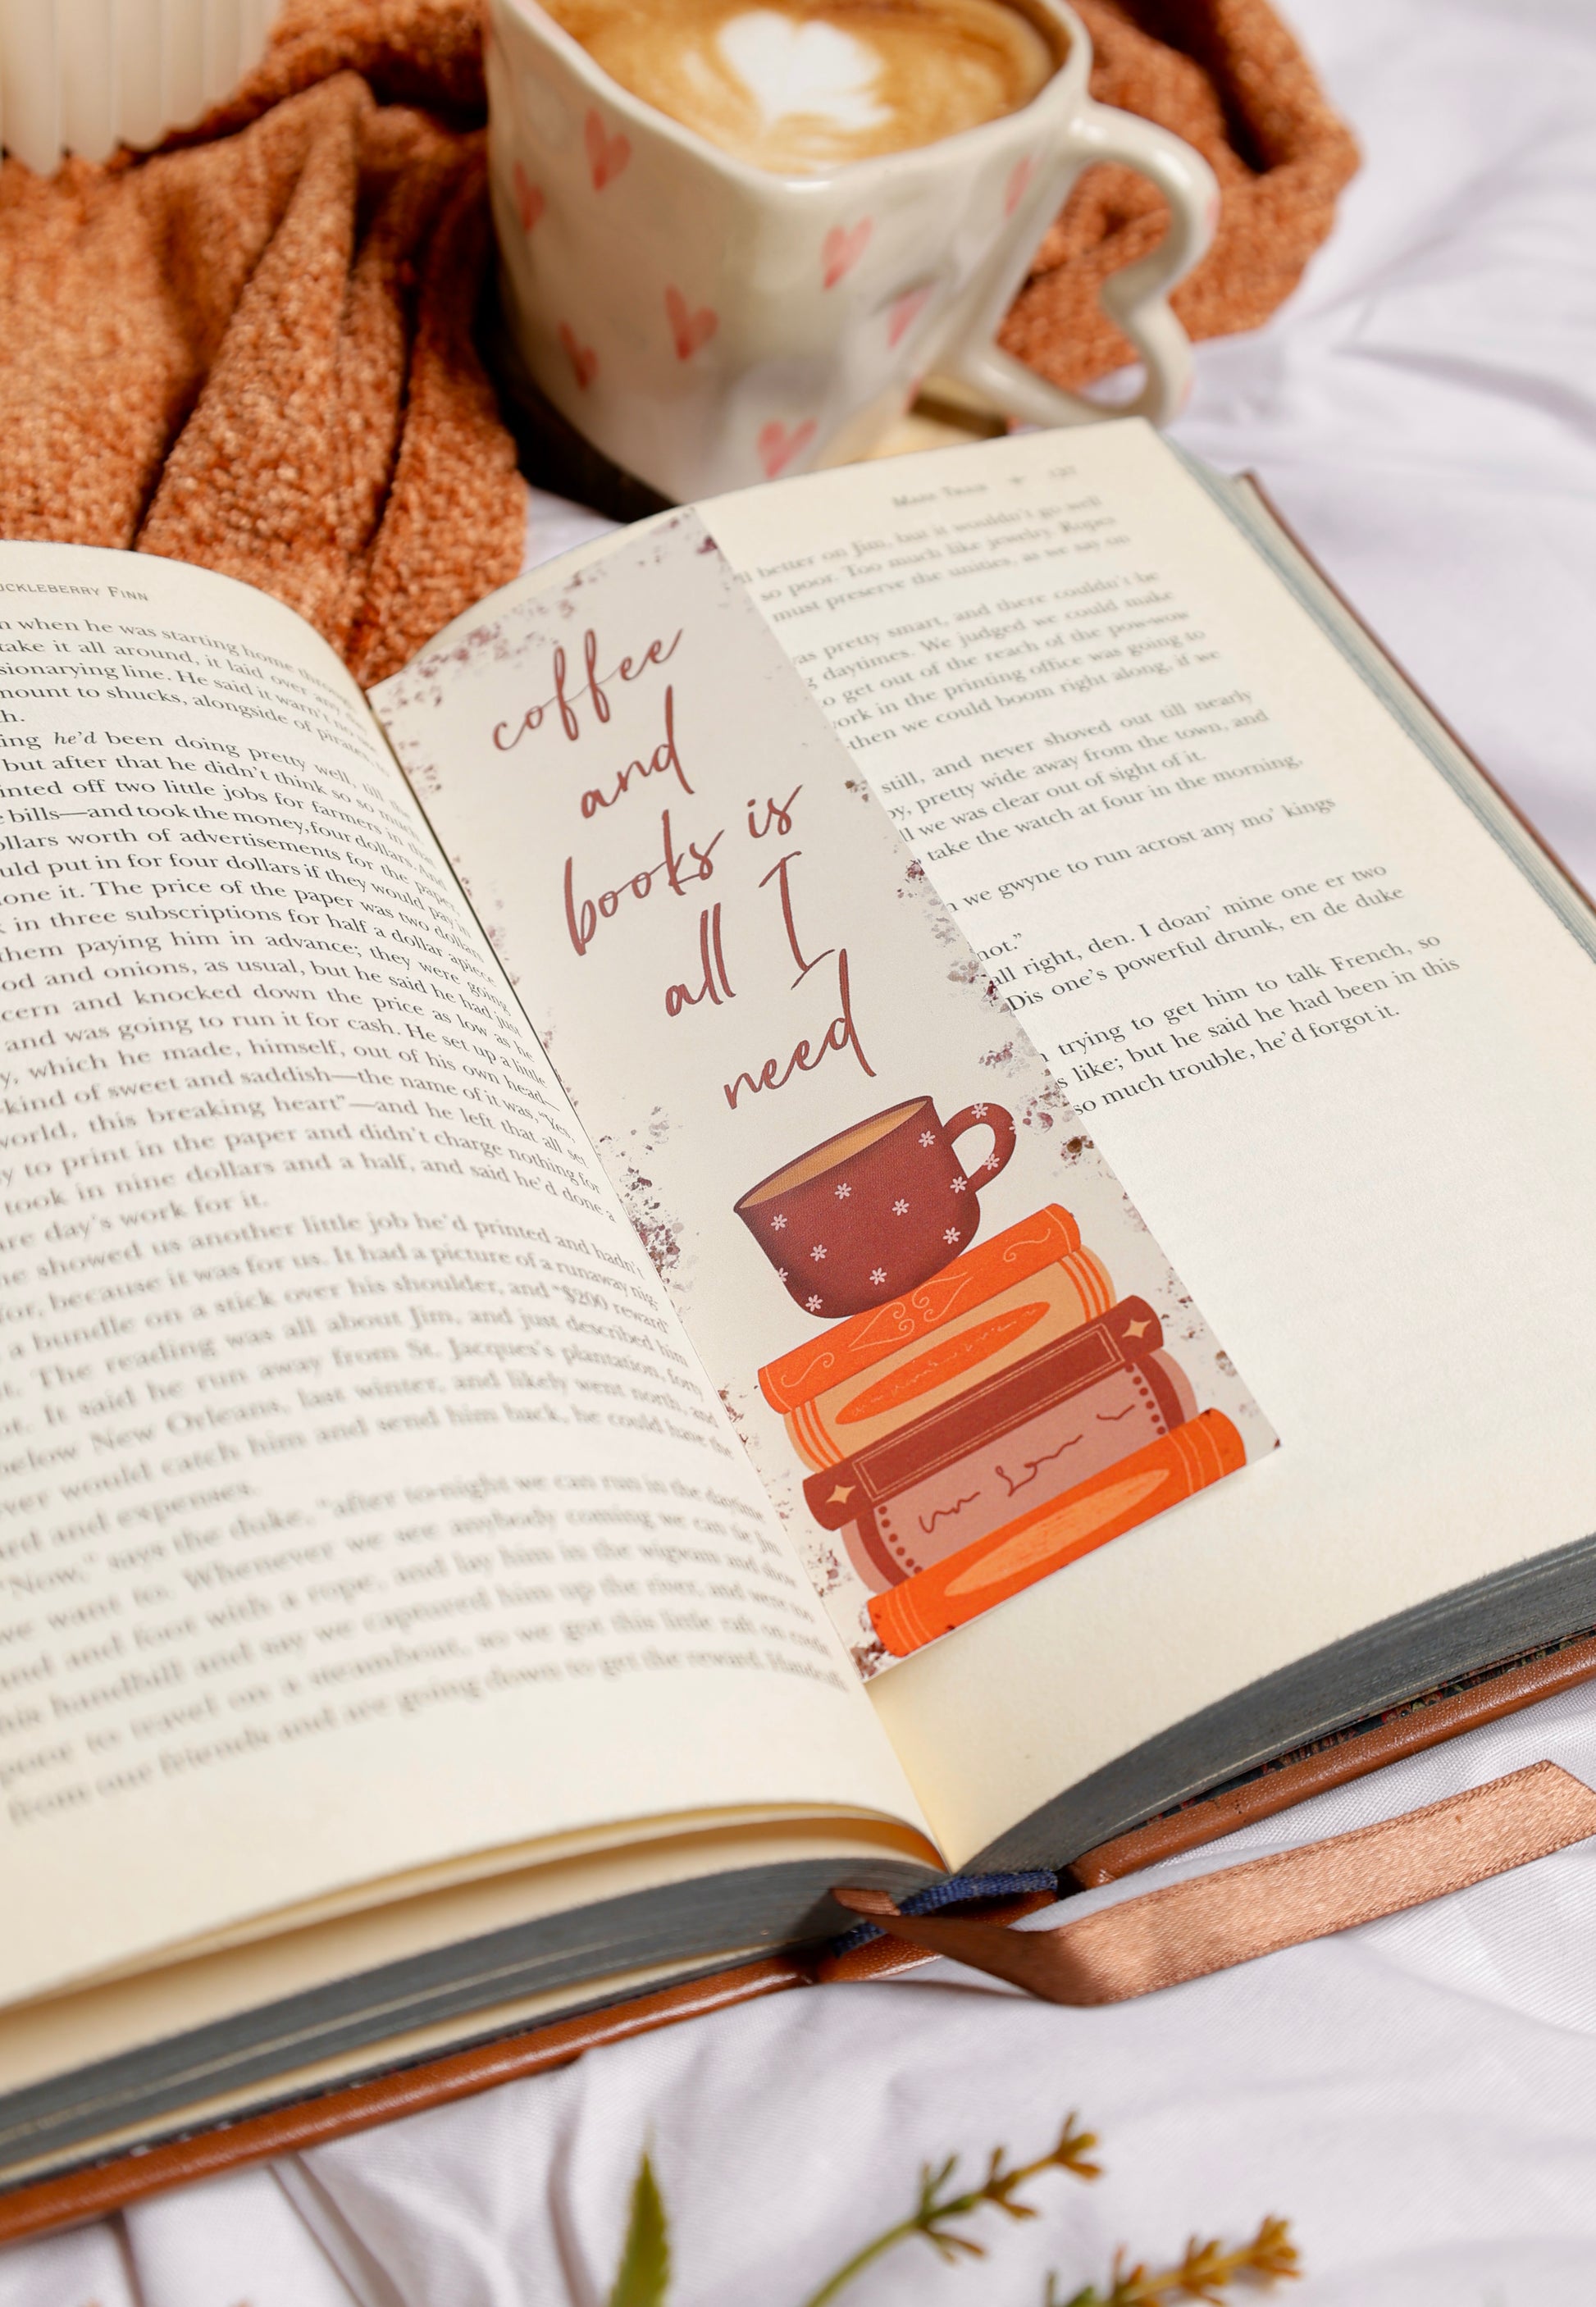 UCKLEBERRY FINN
n when he was starting home through
take it all around, it laid over any
sionarying line. He said it warn't no use
mount to shucks, alongside of pirates, to
h.
ing he'd been doing pretty well, till the
but after that he didn't think so so much
inted off two little jobs for farmers in that
bills—and took the money, four dollars. And
ollars worth of advertisements for the paper,
uld put in for four dollars if they would pay in
one it. The price of the paper was two dollars
k in three subscriptions for half a dollar apiece
them paying him in advance; they were going
od and onions, as usual, but he said he had just
cern and knocked down the price as low as he
and was going to run it for cash. He set up a little
y, which he made, himself, out of his own head—
kind of sweet and saddish—the name of it was, "Yes,
world, this breaking heart"—and he left that all set
y to print in the paper and didn't charge nothing for
took in nine dollars and a half, and said he'd done a
are day's work for it.
he showed us another little job he'd printed and hadn't
for, because it was for us. It had a picture of a runaway nig-
a bundle on a stick over his shoulder, and "$200 reward"
t. The reading was all about Jim, and just described him
ot. It said he run away from St. Jacques's plantation, forty
below New Orleans, last winter, and likely went north, and
ver would catch him and send him back, he could have the
rd and expenses.
"Now," says the duke, "after to-night we can run in the daytime
we want to. Whenever we see anybody coming we can tie Jim
and foot with a rope, and lay him in the wigwam and show
his handbill and say we captured him up the river, and were too
poor to travel on a steamboat, so we got this little raft on credit
from our friends and are going down to get the reward. Handcuffs
coffee
and
books is
all I
need
MARK TWAIN
ll better on Jim, but it wouldn't go well
so poor. Too much like jewelry. Ropes
must preserve the unities, as we say on
as pretty smart, and there couldn't be
g daytimes. We judged we could make
o get out of the reach of the pow-wow
ork in the printing office was going to
then we could boom right along, if we
still, and never shoved out till nearly
oy, pretty wide away from the town, and
ll we was clear out of sight of it.
take the watch at four in the morning,
n we gwyne to run acrost any mo' kings
not."
all right, den. I doan' mine one er two
Dis one's powerful drunk, en de duke
n trying to get him to talk French, so
s like; but he said he had been in this
so much trouble, he'd forgot it.